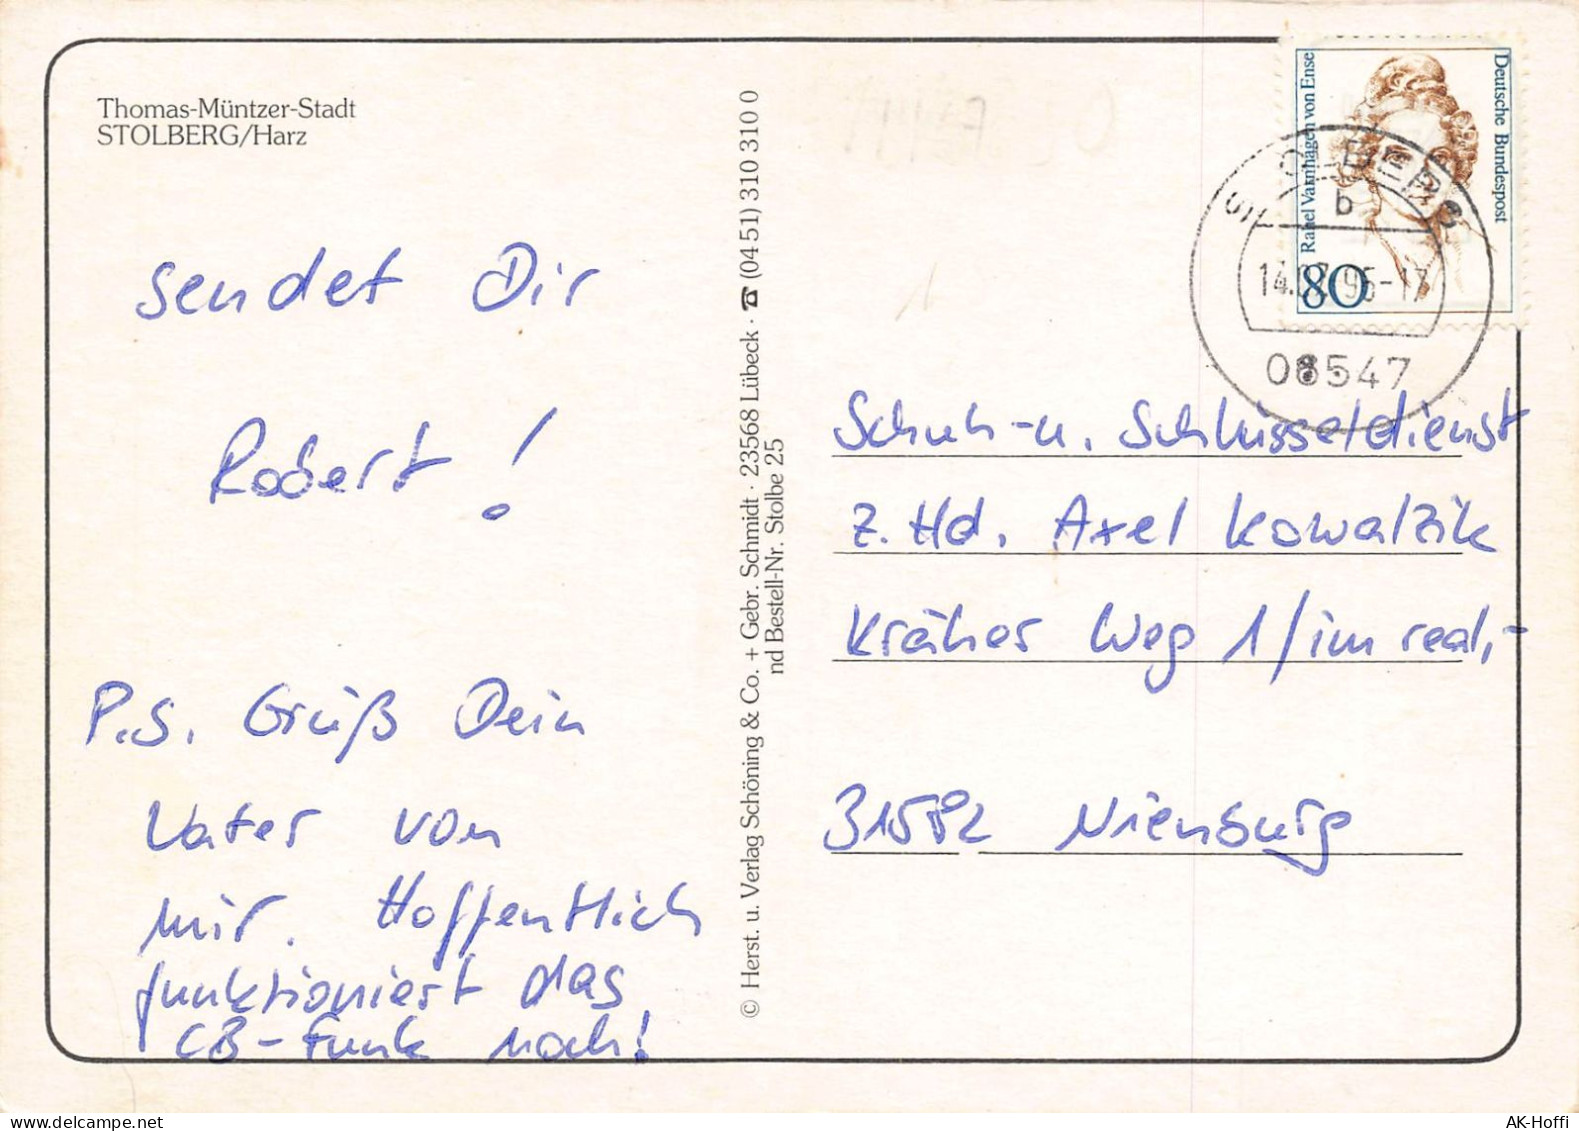 Thomas-Müntzer-Stadt
STOLBERG/Harz
sendet Dir
Robert!
P.S. Grüß Dein
Vater von
mir. Hoffentlich
funktioniert das
CB-Funk noch!
© Herst. u. Verlag Schöning & Co. + Gebr. Schmidt · 23568 Lübeck · ☎ (04 51) 310 310 0
nd Bestell-Nr. Stolbe 25
Deutsche Bundespost
Rahel Varnhagen von Ense
80
STOLBERG
b
95-17
06547
Schuh- u. Schlüsseldienst
z. Hd. Axel Kowalzik
Kräher Weg 1/im real,-
31582 Nienburg
AK-Hoffi